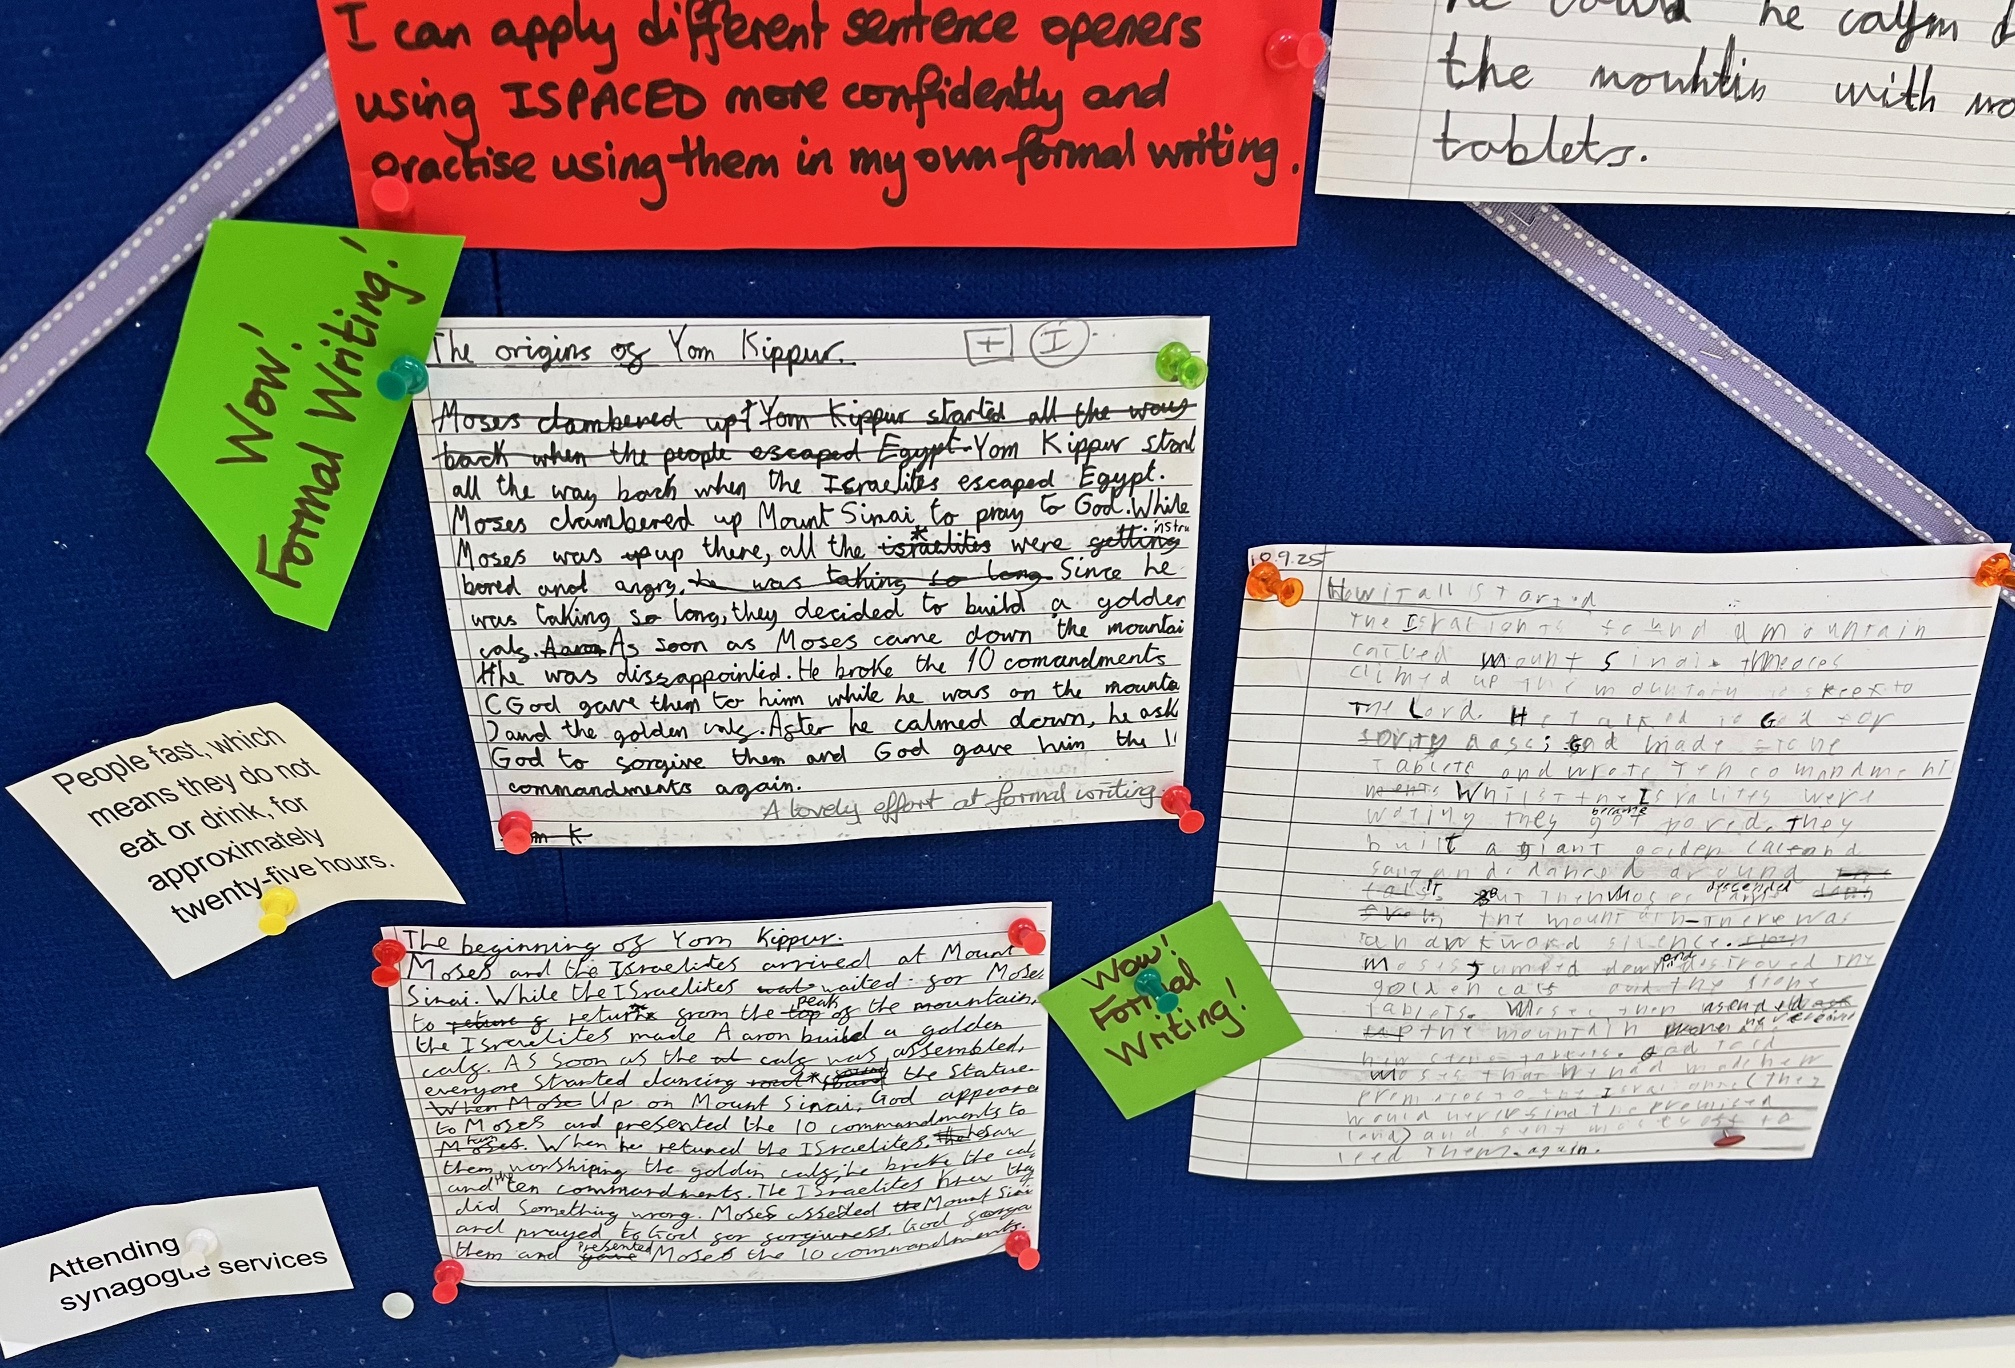 I can apply different sentence openers
using ISPACED more confidently and
practise using them in my own formal writing.
he calym
the mountin with
tablets.
Wow!
Formal Writing!
The origins of Yom Kippur. + I
Moses clambered up Yom Kippur started all the way
back when the people escaped Egypt. Yom Kippur start
all the way back when the Israelites escaped Egypt.
Moses clambered up Mount Sinai to pray to God. While
instru
Moses was up up there, all the israelites were getting
bored and angry. he was taking so long. Since he
was taking so long, they decided to build a golden
calf. Aaron As soon as Moses came down the mountai
he was disappointed. He broke the 10 comandments
(God gave them to him while he was on the mounta
) and the golden calf. After he calmed down, he ask
God to forgive them and God gave him the
commandments again.
A lovely effort at formal writing.
People fast, which
means they do not
eat or drink, for
approximately
twenty-five hours.
The beginning of Yom Kippur.
Moses and the Israelites arrived at Mount
Sinai. While the Israelites wat waited for Moses
peak
to return from the top of the mountain,
the Israelites made Aaron build a golden
calf. As soon as the calf was assembled,
everyone started dancing the statue.
When Mose Up on Mount Sinai, God appeare
to Moses and presented the 10 commandments to
Moses. When he returned the Israelites, he saw
them worshiping the goldin calf, he broke the cal
and the ten commandments. The Israelites knew they
did something wrong. Moses the Mount Sinai
and prayed to God for forgivness. God
presented
them and gave Moses the 10 commandments.
Wow!
Formal
Writing!
Attending
synagogue services
.9.25
How it all started
found a mountain
called mount Sinai.
climed up the
The Lord. He talked to God for
God made stone
Tablets and wrote Ten comandme
Whilst the Isralites were
became
they got bored. They
built a giant golden calf and
sang and danced around
descended
it But then Moses came down
from the mountain There was
an awkward silence.
and
Moses jumped down destroyed the
golden calf and the stone
tablets. Moses then
up the mountain
new stone tablets. God told
Moses that
the
would never find the promised
land) and sent
leed them again.